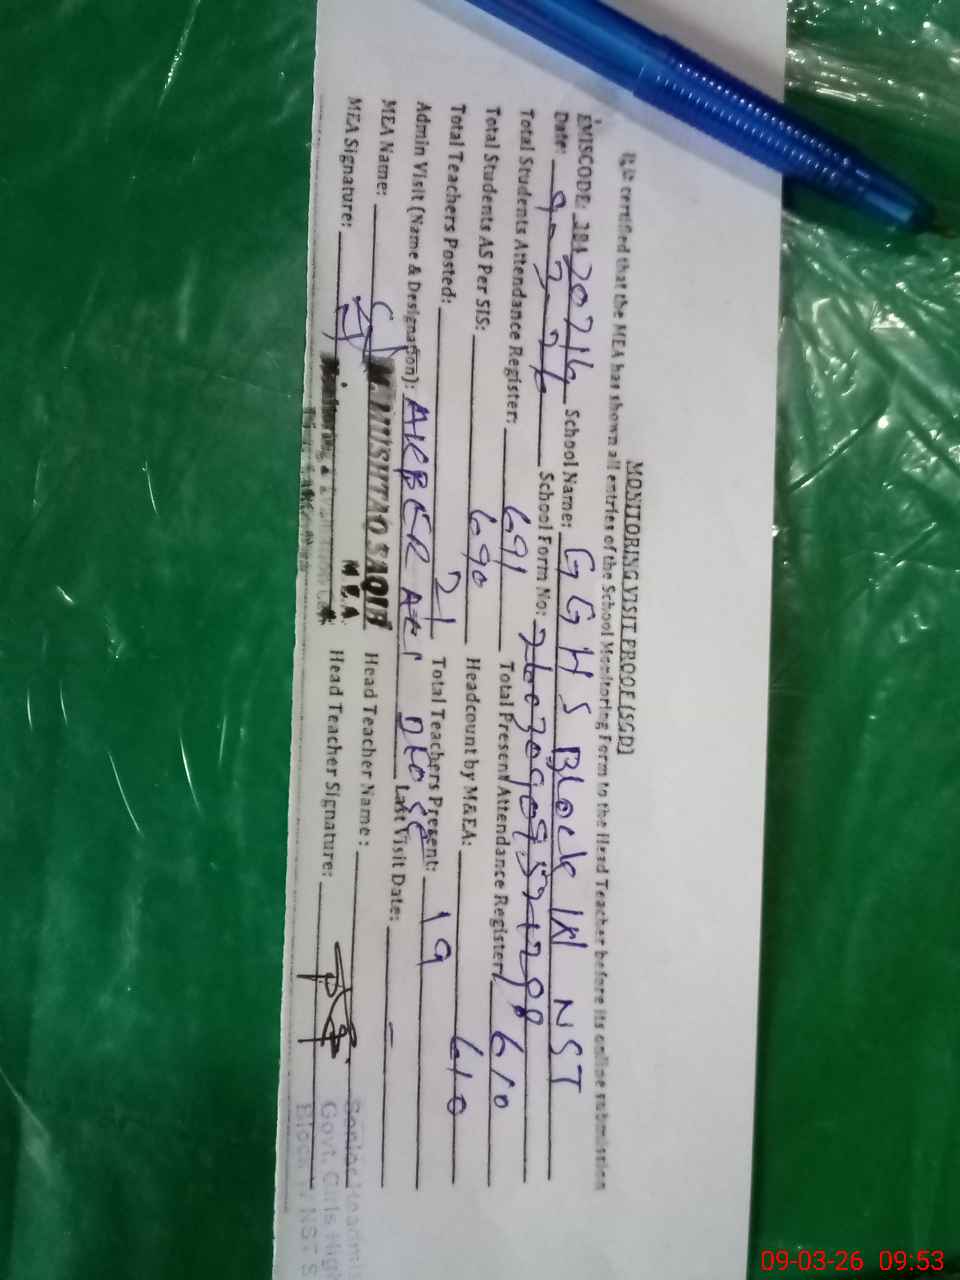 MONITORING VISIT PROOF (SGD)
It is certified that the MEA has shown all entries of the School Monitoring Form to the Head Teacher before its online submission
EMISCODE: 38420716 School Name: GGHS Block IV NST
Date: 9-3-26 School Form No:
Total Students Attendance Register: 691 Total Present Attendance Register 610
Total Students AS Per SIS: 690 Headcount by M&EA: 610
Total Teachers Posted: 21 Total Teachers Present: 19
Admin Visit (Name & Designation): AKBER Last Visit Date: -
MEA Name: M. MUSHTAQ SAQIB Head Teacher Name:
M.E.A.
MEA Signature: Head Teacher Signature:
Govt. Girls High
Block IV NST S
09-03-26 09:53